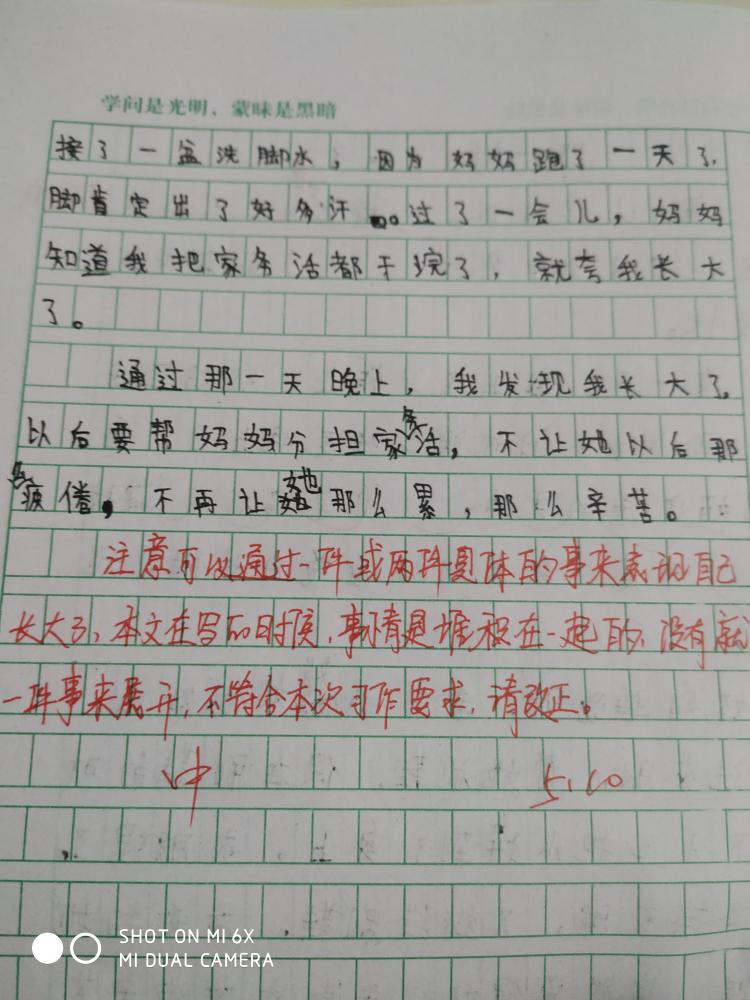 学问是光明，蒙昧是黑暗
接了一盆洗脚水，因为妈妈跑了一天了，
脚肯定出了好多汗。过了一会儿，妈妈
知道我把家务活都干完了，就夸我长大
了。
通过那一天晚上，我发现我长大了。
以后要帮妈妈分担家务活，不让她以后那
么疲倦，不再让她那么累，那么辛苦。
注意可以通过一件或两件具体的事来表现自己
长大了，本文在写的时候，事情是堆积在一起的，没有就
一件事来展开，不符合本次习作要求，请改正。
中 5.10
SHOT ON MI 6X
MI DUAL CAMERA